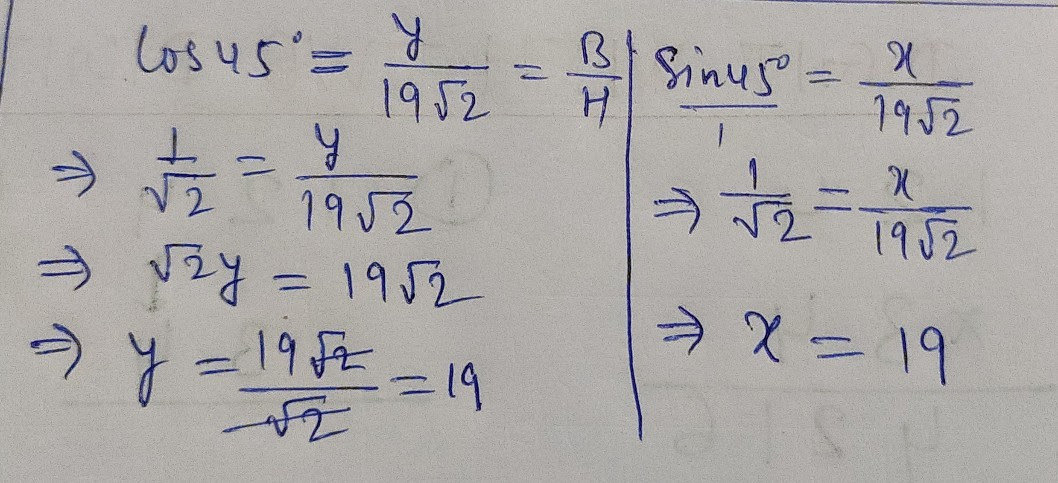 cos 45° = y/19√2 = B/H
⇒ 1/√2 = y/19√2
⇒ √2y = 19√2
⇒ y = 19√2/√2 = 19
Sin 45° = x/19√2
⇒ 1/√2 = x/19√2
⇒ x = 19